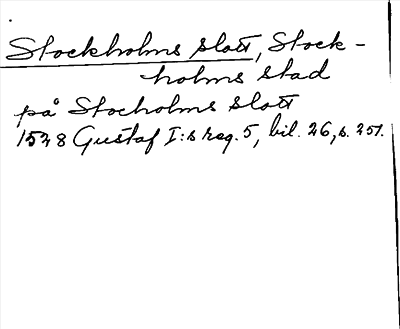 Stockholms slott, Stock-
holms stad
på Stocholms slott
1528 Gustaf I:s reg. 5, bil. 26, s. 251.